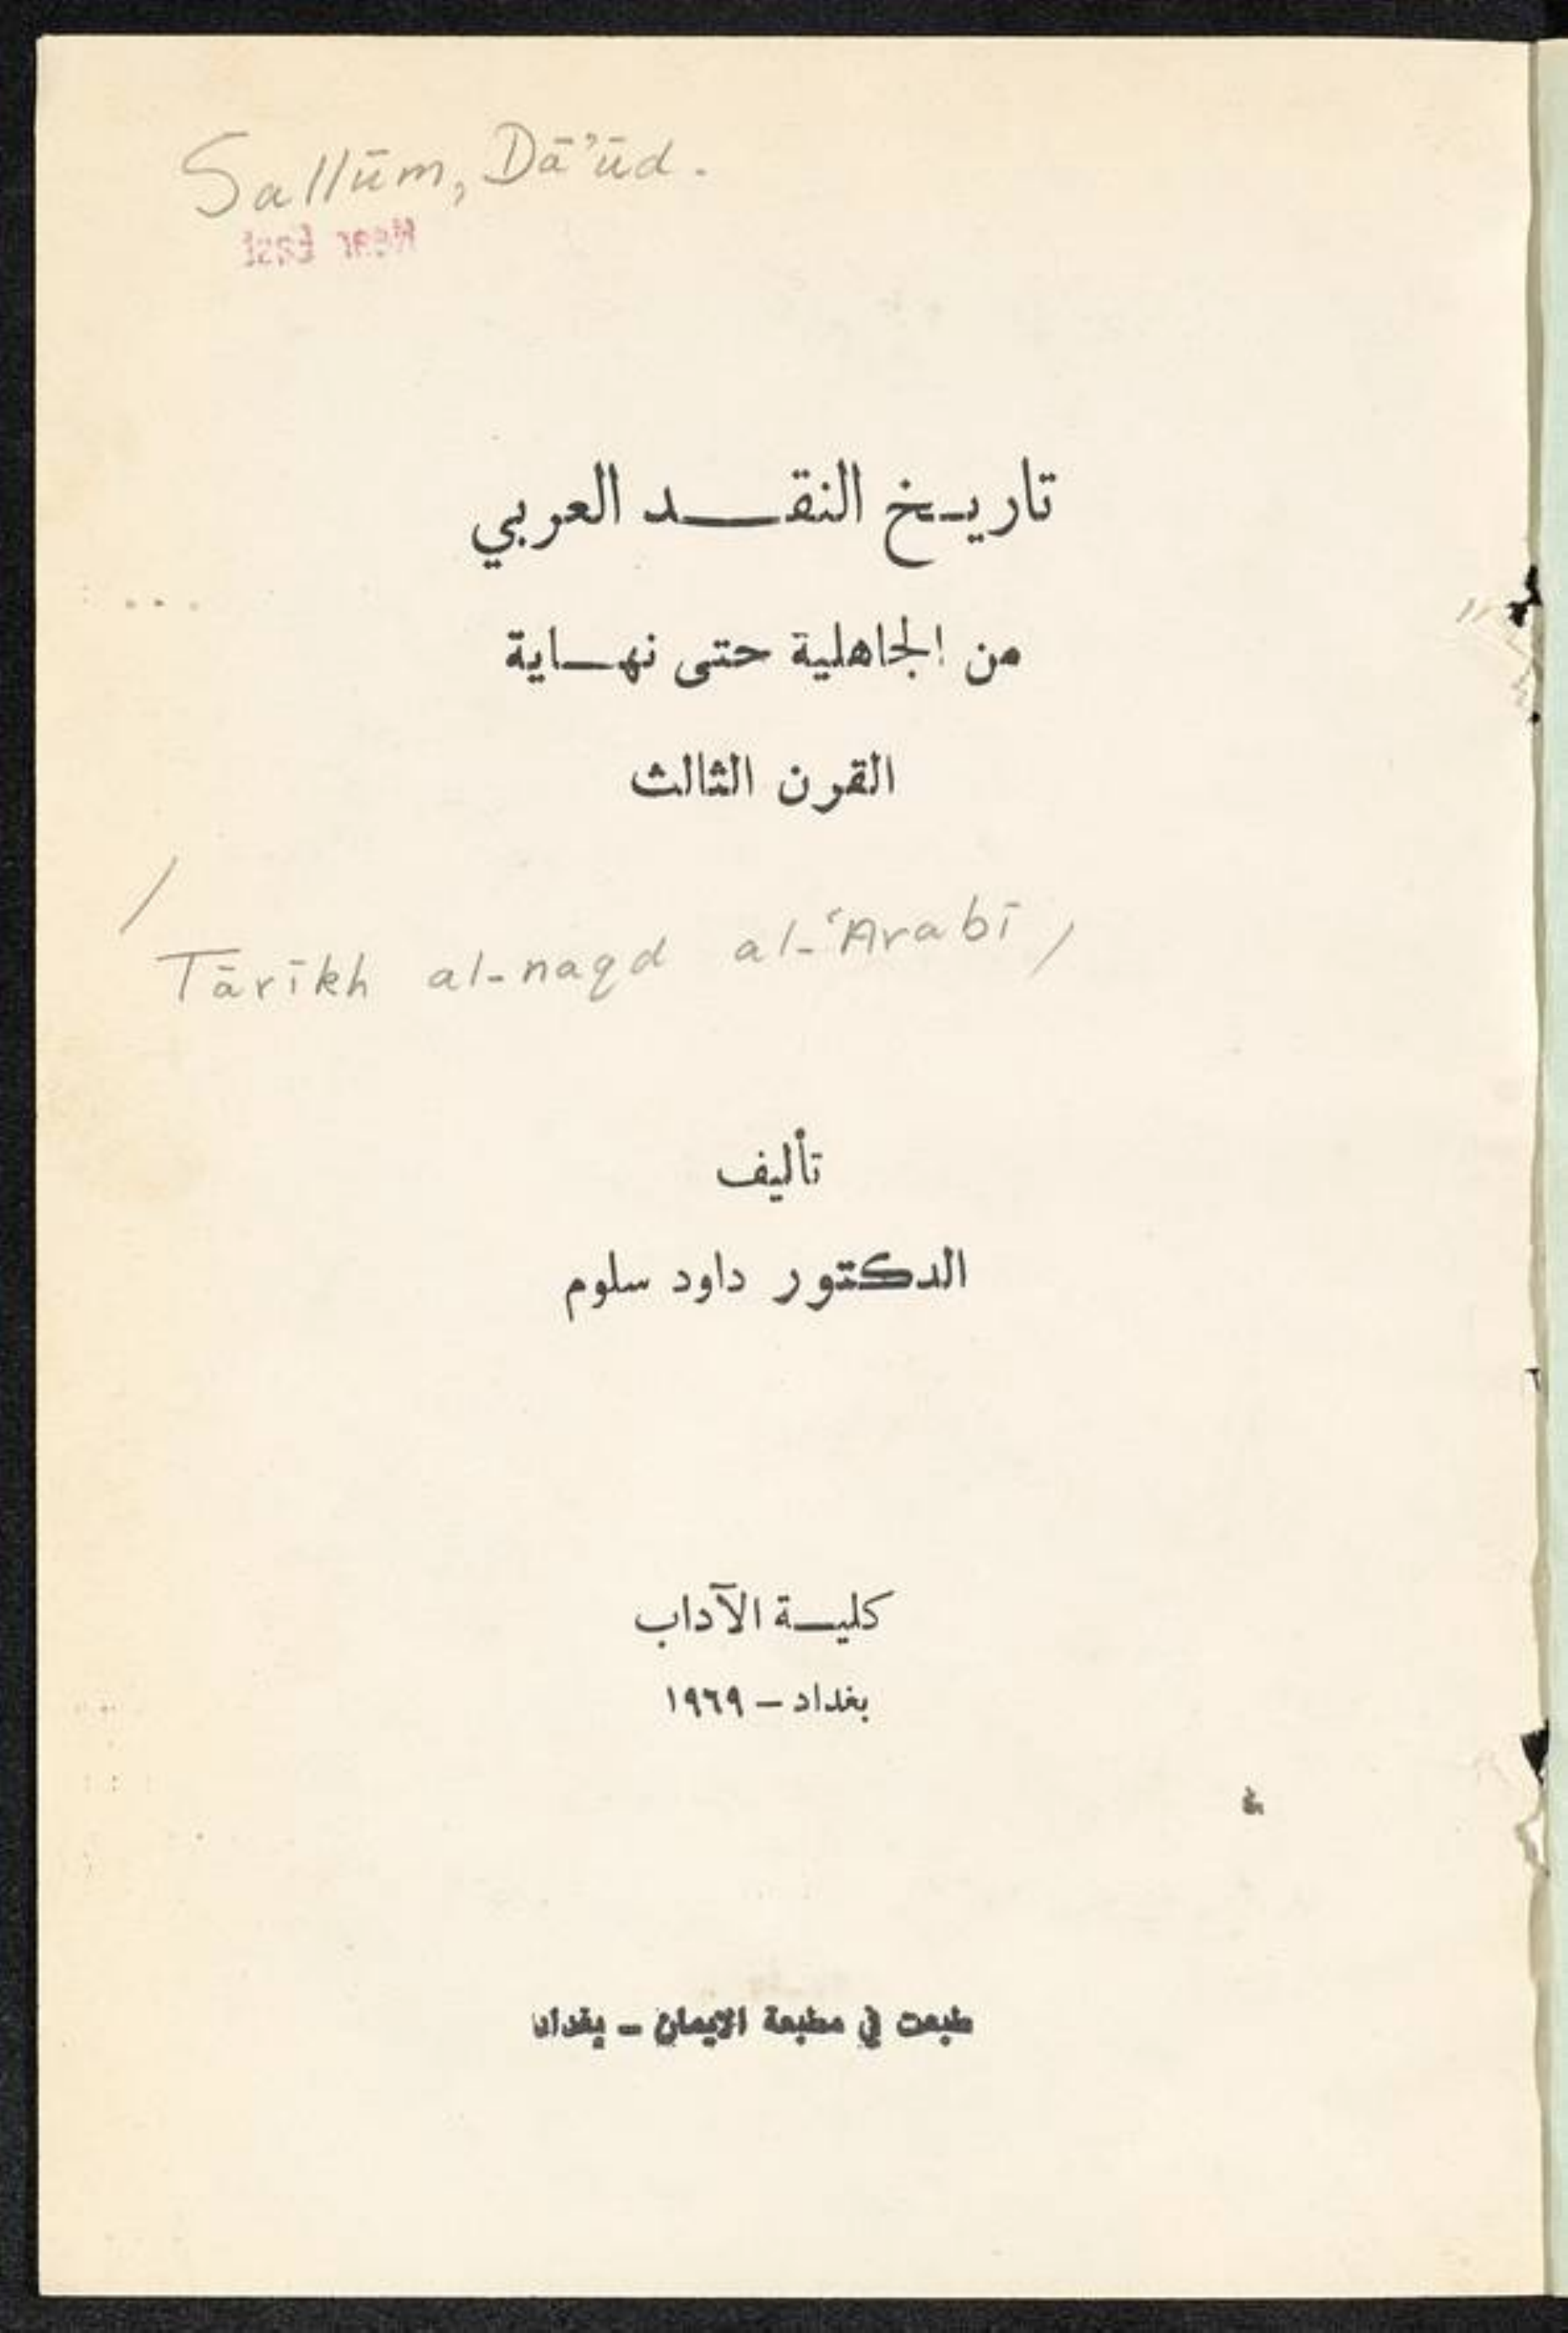 Sallūm, Dā'ūd.
Near East
تاريخ النقد العربي
من الجاهلية حتى نهاية
القرن الثالث
/
Tārīkh al-naqd al-‘Arabī /
تأليف
الدكتور داود سلوم
كلية الآداب
بغداد – ١٩٦٩
طبعت في مطبعة الايمان – بغداد